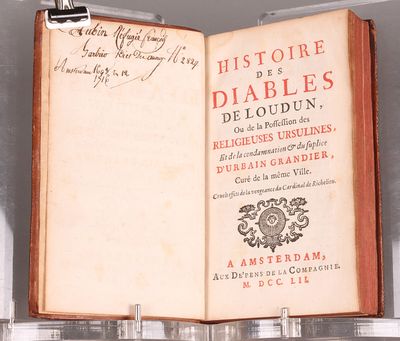 Aubin Réfugié
No 2829
Amsterdam
1716
HISTOIRE
DES
DIABLES
DE LOUDUN,
Ou de la Possession des
RELIGIEUSES URSULINES,
Et de la condamnation & du suplice
D'URBAIN GRANDIER,
Curé de la même Ville.
Cruels effets de la vengeance du Cardinal de Richelieu.
A AMSTERDAM,
AUX DE'PENS DE LA COMPAGNIE.
M. DCC. LII.